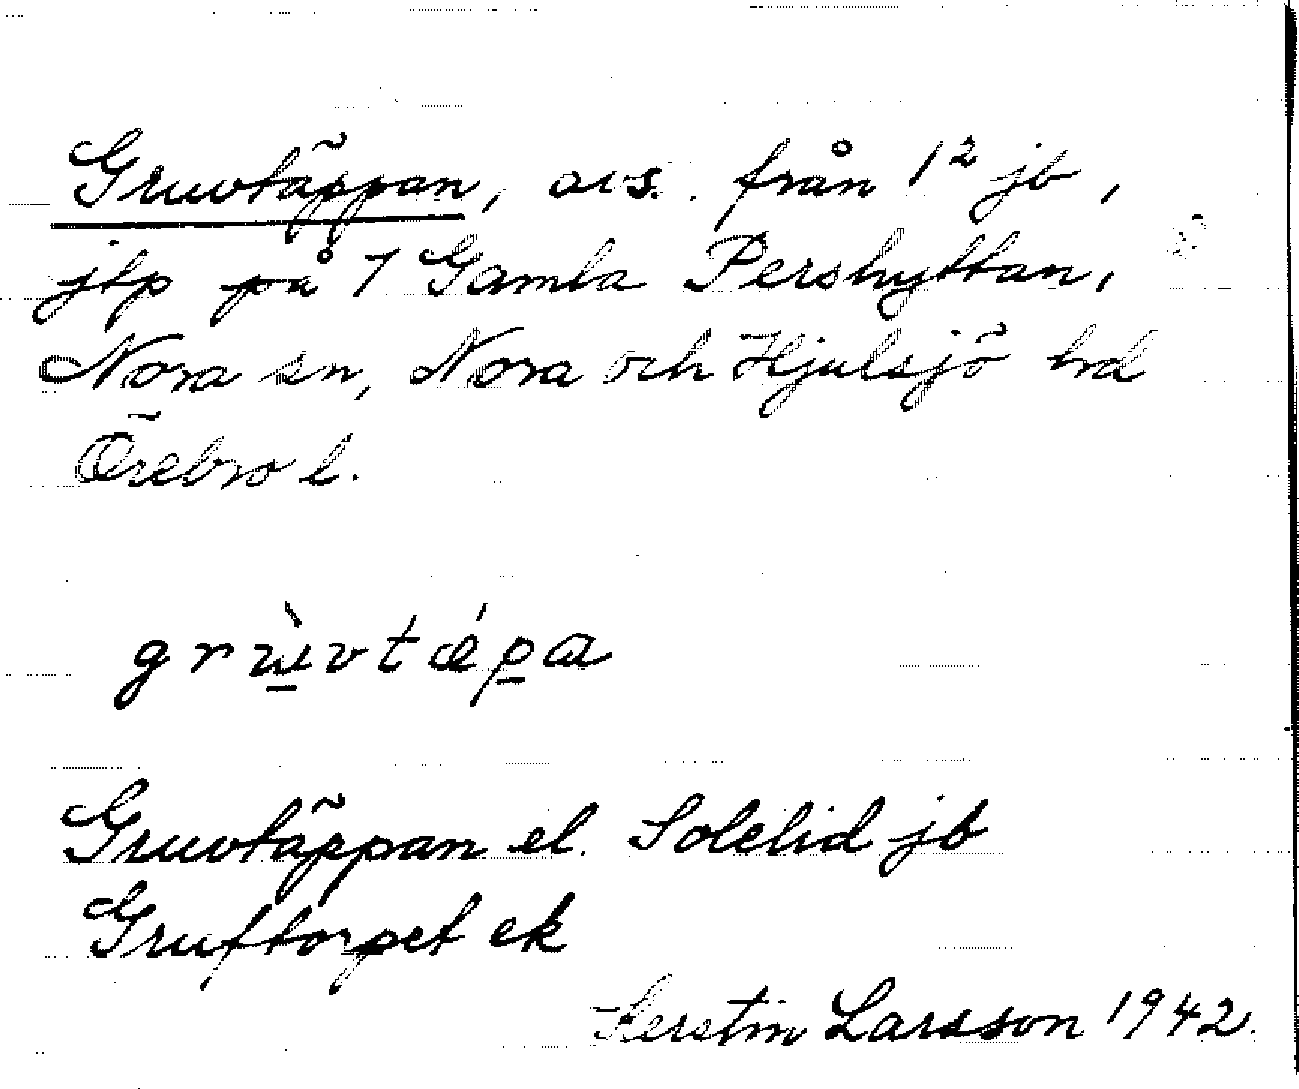 Gruvtäppan, avs. från 1² jb,
jtp på 1 Gamla Pershyttan,
Nora sn, Nora och Hjulsjö hd
Örebro l.
grùvtǽpa
Gruvtäppan el. Solelid jb
Gruftorpet ek
Kerstin Larsson 1942.